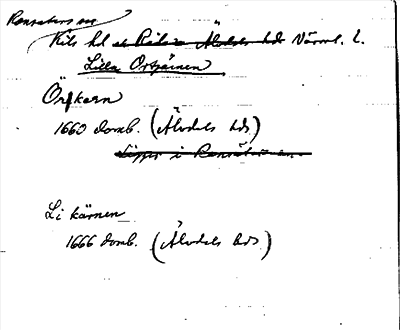 Ransäters sn
Kils hd Älvdals hds Värml. l.
Lilla Örtjärnen
Örkern
1660 domb. (Älvdals hds)
Ligger i Ransäters sn.
Li kärnen
1666 domb. (Älvdals hds.)